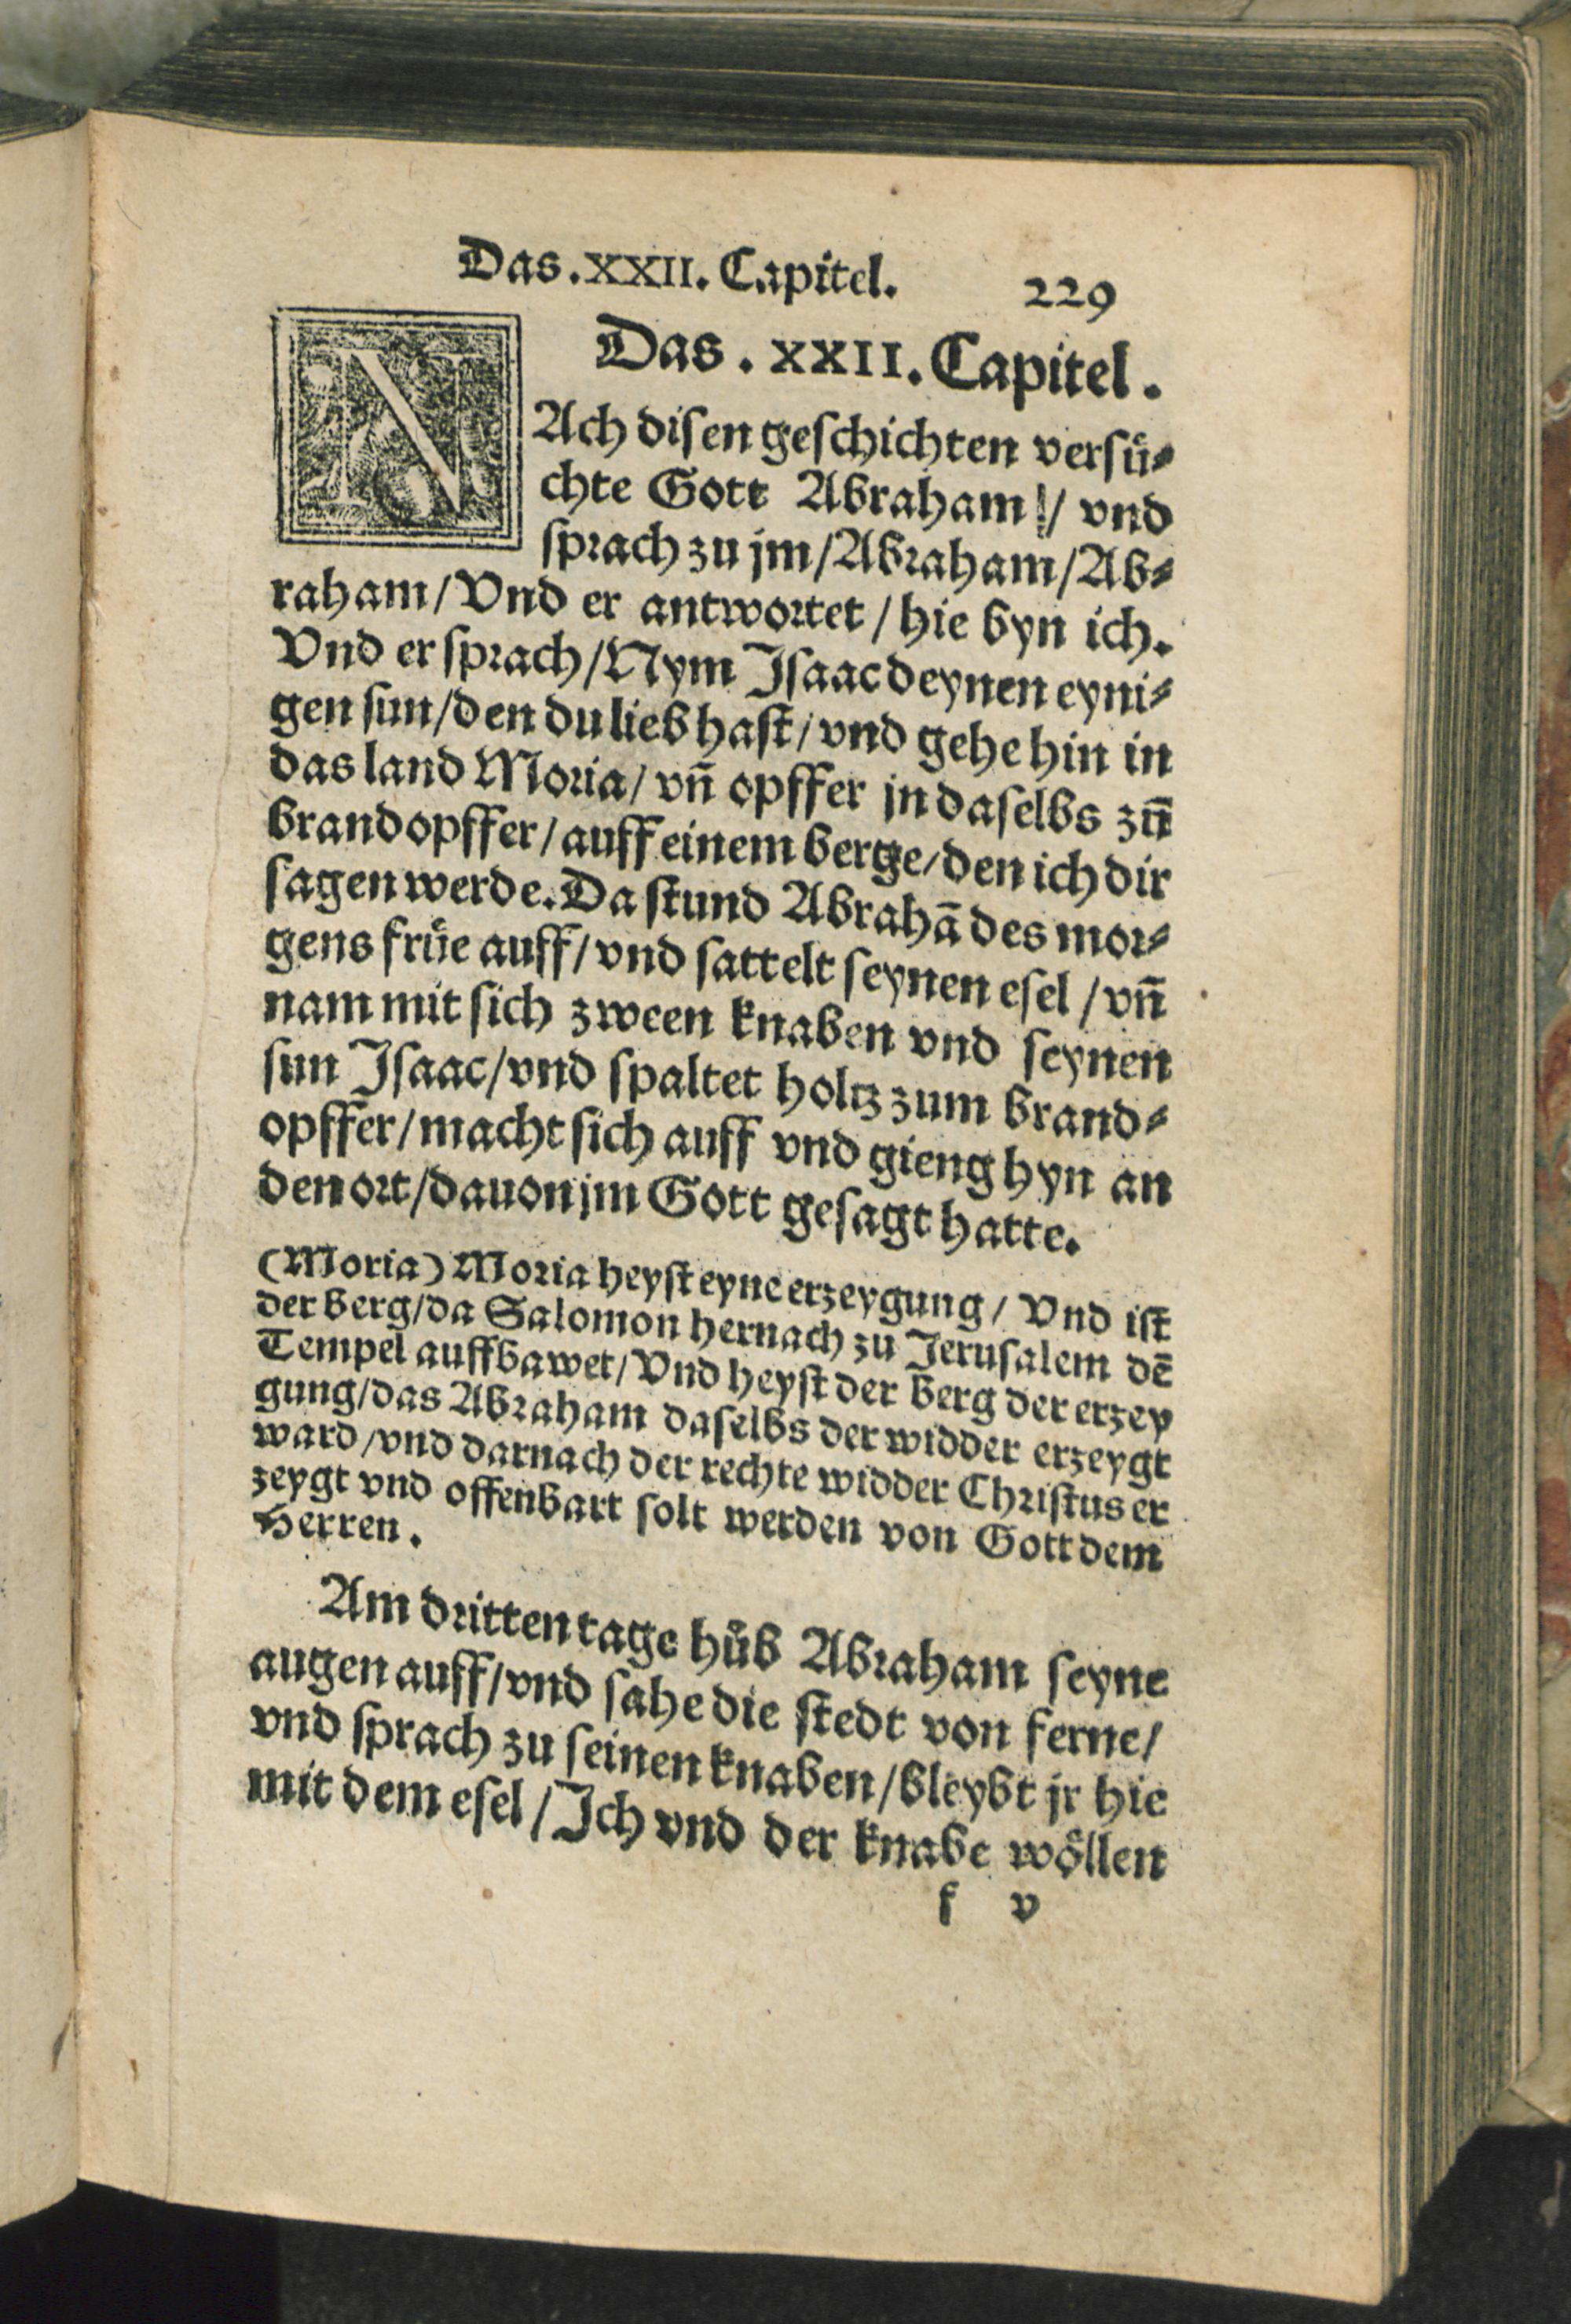 Das. XXII. Capitel. 229
Das. XXII. Capitel.
NAch disen geschichten versuͤ⸗
chte Gott Abraham / vnd
sprach zu jm / Abraham / Ab⸗
raham / Vnd er antwortet / hie byn ich.
Vnd er sprach / Nym Isaac deynen eyni⸗
gen sun / den du lieb hast / vnd gehe hin in
das land Moria / vn̄ opffer jn daselbs zū
brandopffer / auff einem berge / den ich dir
sagen werde. Da stund Abrahā des mor⸗
gens fruͤe auff / vnd sattelt seynen esel / vn̄
nam mit sich zween knaben vnd seynen
sun Isaac / vnd spaltet holtz zum brand⸗
opffer / macht sich auff vnd gieng hyn an
den ort / dauon jm Gott gesagt hatte.
(Moria) Moria heyst eyne erzeygung / Vnd ist
der berg / da Salomon hernach zu Jerusalem dē
Tempel auffbawet / Vnd heyst der berg der erzey
gung / das Abraham daselbs der widder erzeygt
ward / vnd darnach der rechte widder Christus er
zeygt vnd offenbart solt werden von Gott dem
Herren.
Am dritten tage huͦb Abraham seyne
augen auff / vnd sahe die stedt von ferne /
vnd sprach zu seinen knaben / bleybt jr hie
mit dem esel / Ich vnd der knabe woͤllen
f v